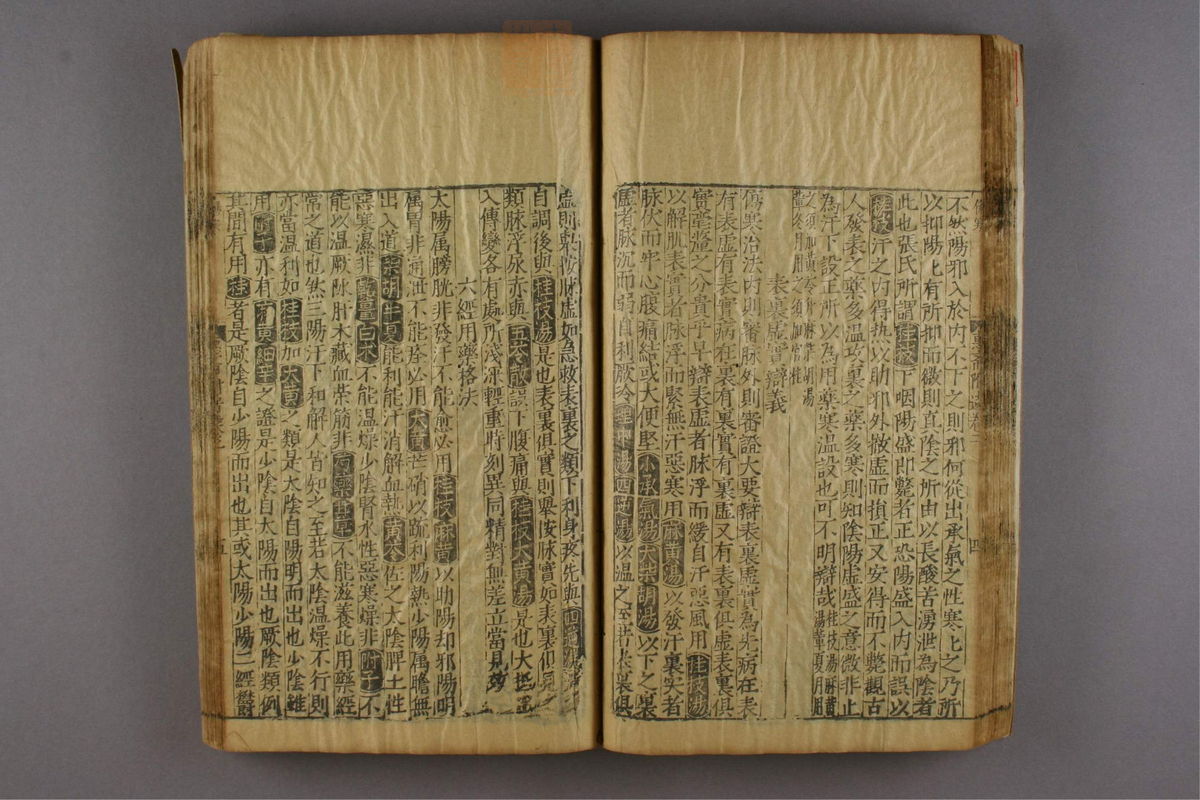 不然陽邪入於內不下之則邪何從出承氣之性寒上之乃所
以抑陽上有所抑而微則真陰之所由以長酸苦湧泄為陰者
此也張氏所謂桂枝下咽陽盛即斃者正恐陽盛入內而誤以
桂枝汗之內得热以助邪外撤虛而損正又安得而不斃觀古
人發表之藥多温攻裏之藥多寒則知陰陽虛盛之意微非止
為汗下設正所以為用藥寒温設也可不明辯哉
表裏虛實辯義
傷寒治法內則審脉外則審證大要辯表裏虛實為先病在表
有表虛有表實病在裏有裏實有裏虛又有表裏俱虛表裏俱
實之分貴乎早辯表虛者脉浮而緩自汗惡風用桂枝湯
以解肌表實者脉浮而緊無汗惡寒用麻黄湯以發汗裏实者
脉伏而牢心腹痛結或大便堅小承氣湯大柴胡湯以下之裏
虛者脉沉而弱自利厥冷理中湯四逆湯以温之至若表裏俱
虛則擧按脉虛如急救表裏之類下利身疼先與四逆湯
自調後與桂枝湯是也表裏俱實則舉按脉實如表裏
類脉浮尿赤與五苓散誤下腹痛與桂枝大黄湯是也大抵
入傳變各有處所淺深輕重時刻異同精對無差立當見効
六經用藥格法
太陽属膀胱非發汗不能愈必用桂枝麻黄以助陽却邪陽明
属胃非通泄不能痊必用大黄芒硝以疏利陽熱少陽属膽無
出入道柴胡半夏能利能汗消解血熱黄芩佐之太陰脾土性
惡寒濕非乾薑白术不能温燥少陰腎水性惡寒燥非附子不
能以温厥阴肝木藏血榮筋非芍藥甘草不能滋養此用藥經
常之道也然三陽汗下和解人皆知之至若太陰温燥不行則
亦當温利如桂枝加大黄之類是太陰自陽明而出也少陰雖
用附子亦有麻黄細辛之證是少陰自太陽而出也厥陰類例
其間有用桂者是厥陰自少陽而出也其或太陽少陽二經鬱